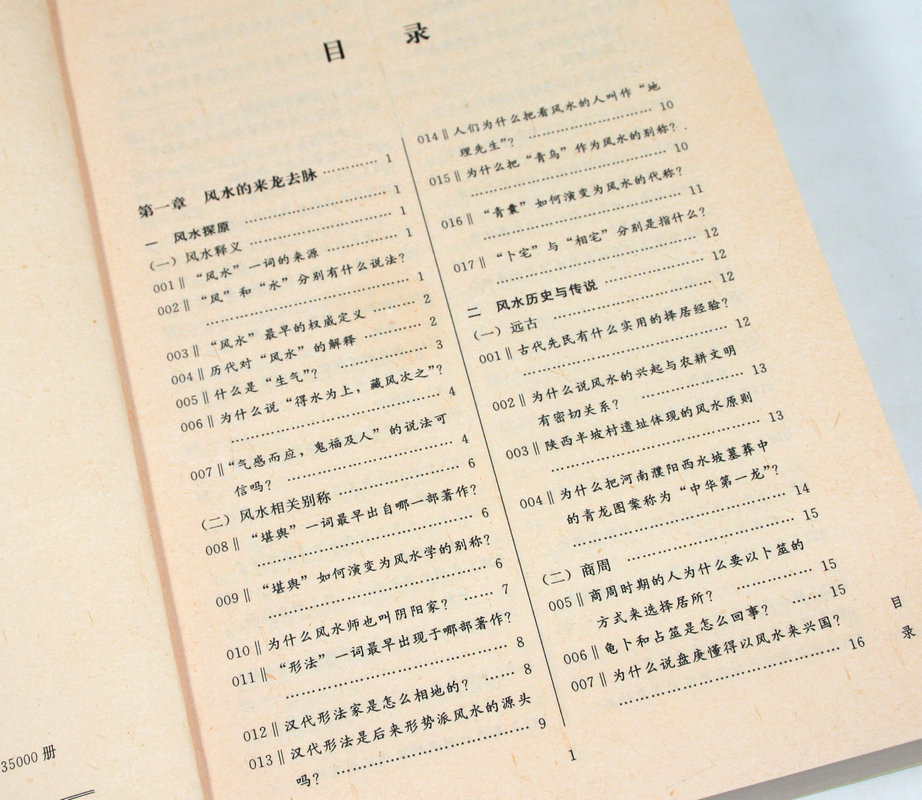 目 录
第一章 风水的来龙去脉 ………… 1
一 风水探原 ………………………… 1
(一) 风水释义 ……………………… 1
001‖ “风水”一词的来源 ………… 1
002‖ “风”和“水”分别有什么说法?
………………………………… 1
003‖ “风水”最早的权威定义 ……… 2
004‖ 历代对“风水”的解释 ………… 2
005‖ 什么是“生气”? ……………… 3
006‖ 为什么说“得水为上，藏风次之”?
………………………………… 4
007‖ “气感而应，鬼福及人”的说法可
信吗? ……………………… 4
(二) 风水相关别称 ………………… 6
008‖ “堪舆”一词最早出自哪一部著作?
………………………………… 6
009‖ “堪舆”如何演变为风水学的别称?
………………………………… 6
010‖ 为什么风水师也叫阴阳家? …… 7
011‖ “形法”一词最早出现于哪部著作?
………………………………… 8
012‖ 汉代形法家是怎么相地的? …… 8
013‖ 汉代形法是后来形势派风水的源头
吗? ………………………… 9
014‖ 人们为什么把看风水的人叫作“地
理先生”? ………………… 10
015‖ 为什么把“青乌”作为风水的别称?
………………………………… 10
016‖ “青囊”如何演变为风水的代称?
………………………………… 11
017‖ “卜宅”与“相宅”分别是指什么?
………………………………… 12
二 风水历史与传说 ……………… 12
(一) 远古 …………………………… 12
001‖ 古代先民有什么实用的择居经验?
………………………………… 12
002‖ 为什么说风水的兴起与农耕文明
有密切关系? ……………… 13
003‖ 陕西半坡村遗址体现的风水原则
………………………………… 13
004‖ 为什么把河南濮阳西水坡墓葬中
的青龙图案称为“中华第一龙”?
………………………………… 14
(二) 商周 …………………………… 15
005‖ 商周时期的人为什么要以卜筮的
方式来选择居所? ………… 15
006‖ 龟卜和占筮是怎么回事? …… 15
007‖ 为什么说盘庚懂得以风水来兴国?
………………………………… 16
目录
1
35000 册